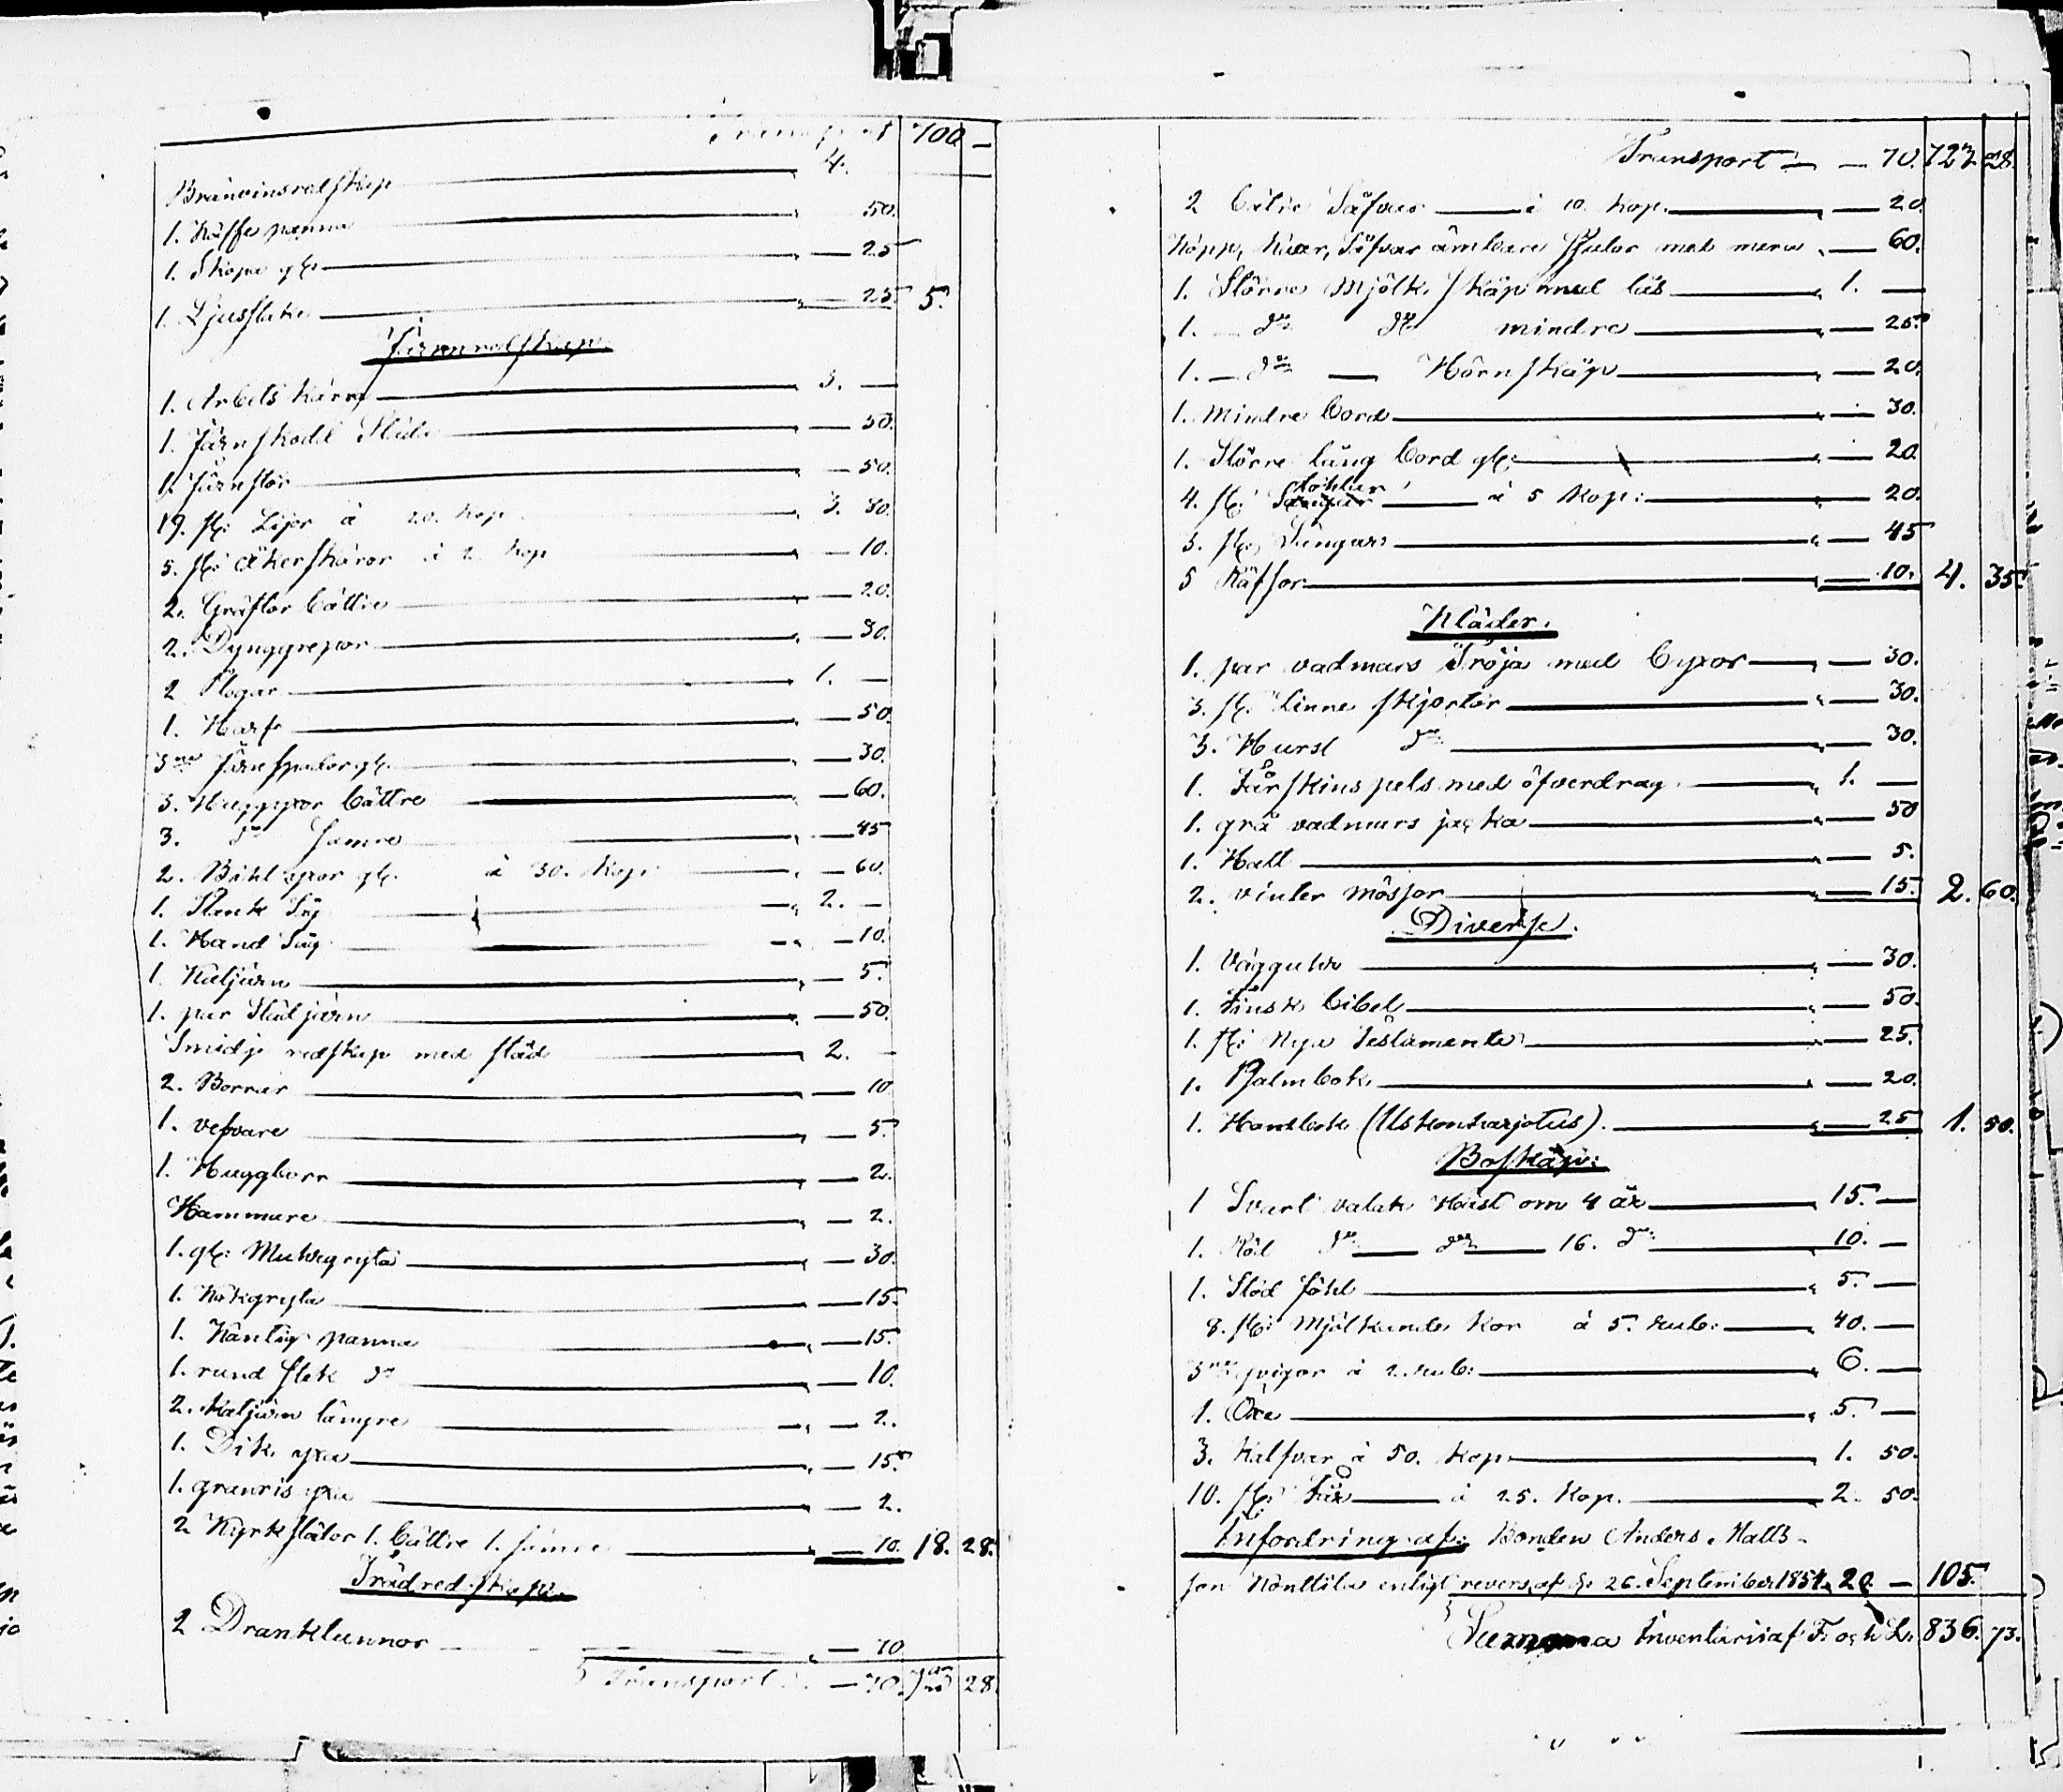 Transport 700 —
Bränvinsredskap 4.
1. Kaffe panna — 50.
1. Skopa gl. — 25
1. Ljusstake — 25. 5.
Järnredskap.
1. Arbets kärra 3. —
1. Järnskodd Släda — 50.
1. Järnstör — 50.
19. st: Lijor à 20. kop. 3. 80.
5. st: Åkerskäror à 2 kop — 10.
2. Gräftor bättre — 20.
2. Dynggrepor — 30.
2 Plogar 1. —
1. Harf — 50.
3ne Järnspadar gl. — 30.
3. Huggyxor bättre — 60.
3. do sämre — 45
2. Bihl yxor gl. à 30. kop. — 60.
1. Stock Såg 2. —
1. Hand Såg — 10.
1. Kaljärn — 5.
1. par Städjärn — 50.
Smidje redskap med städ 2. —
2. Borrar — 10
1. vefvare — 5.
1. Huggborr — 2.
Hammare — 2.
1. gl: Murgryta — 30.
1. Kokgryta — 15.
1. Kantig panna — 15.
1. rund stek do — 10.
2. Kaljärn längre — 2.
1. Dik yxa — 15.
1. granris yxa — 2.
2 Kyrkslädor 1. bättre 1. sämre — 70. 18. 28.
Trädredskap.
2 Dranktunnor — 70
Transport — 70. 723 28.
Transport — 70. 723. 28.
2 bättre Såfvar à 10. kop. — 20.
Köpp, Kar, Såfvar ämbare Skålar med mera — 60.
1. Större Mjölk skåp med lås 1. —
1. — do do mindre — 25.
1. — do — Hörnskåp — 20.
1. Mindre bord — 30.
1. Större lång bord gl: — 20.
4. st: Stohlar à 5 kop: — 20.
3. st: Sängar — 45
5 Räfsor — 10. 4. 35.
Kläder.
1. par vadmars Tröja med byxor — 30.
3. st. Linne skjortor — 30.
3. Hurst do — 30.
1. Fårskins pels med öfverdrag 1. —
1. grå vadmars jacka — 50
1. Hatt — 5.
2. vinter Mössor — 15. 2. 60.
Diverse.
1. Vägguhr — 30.
1. Finsk bibel — 50.
1. st: Nya Testamente — 25.
1. Psalmbok — 20.
1. Handbok (Uskonharjotus). — 25 1. 50.
Boskap:
1 Svart valak Häst om 4 år 15. —
1. Röd do do 16. do 10. —
1. Stod föhl 5. —
8. st: Mjölkande kor à 5. rub: 40. —
3ne qvigor à 2. rub: 6. —
1. Oxe 5. —
3. Kalfvar à 50. kop. 1. 50.
10. st: Får à 25. kop. 2. 50.
Infordring af: Bonden Anders Matts-
son Konttila enligt revers af d. 26. September 1854. 20. — 105.
Summa Inventarii af F. och L. 836. 73.